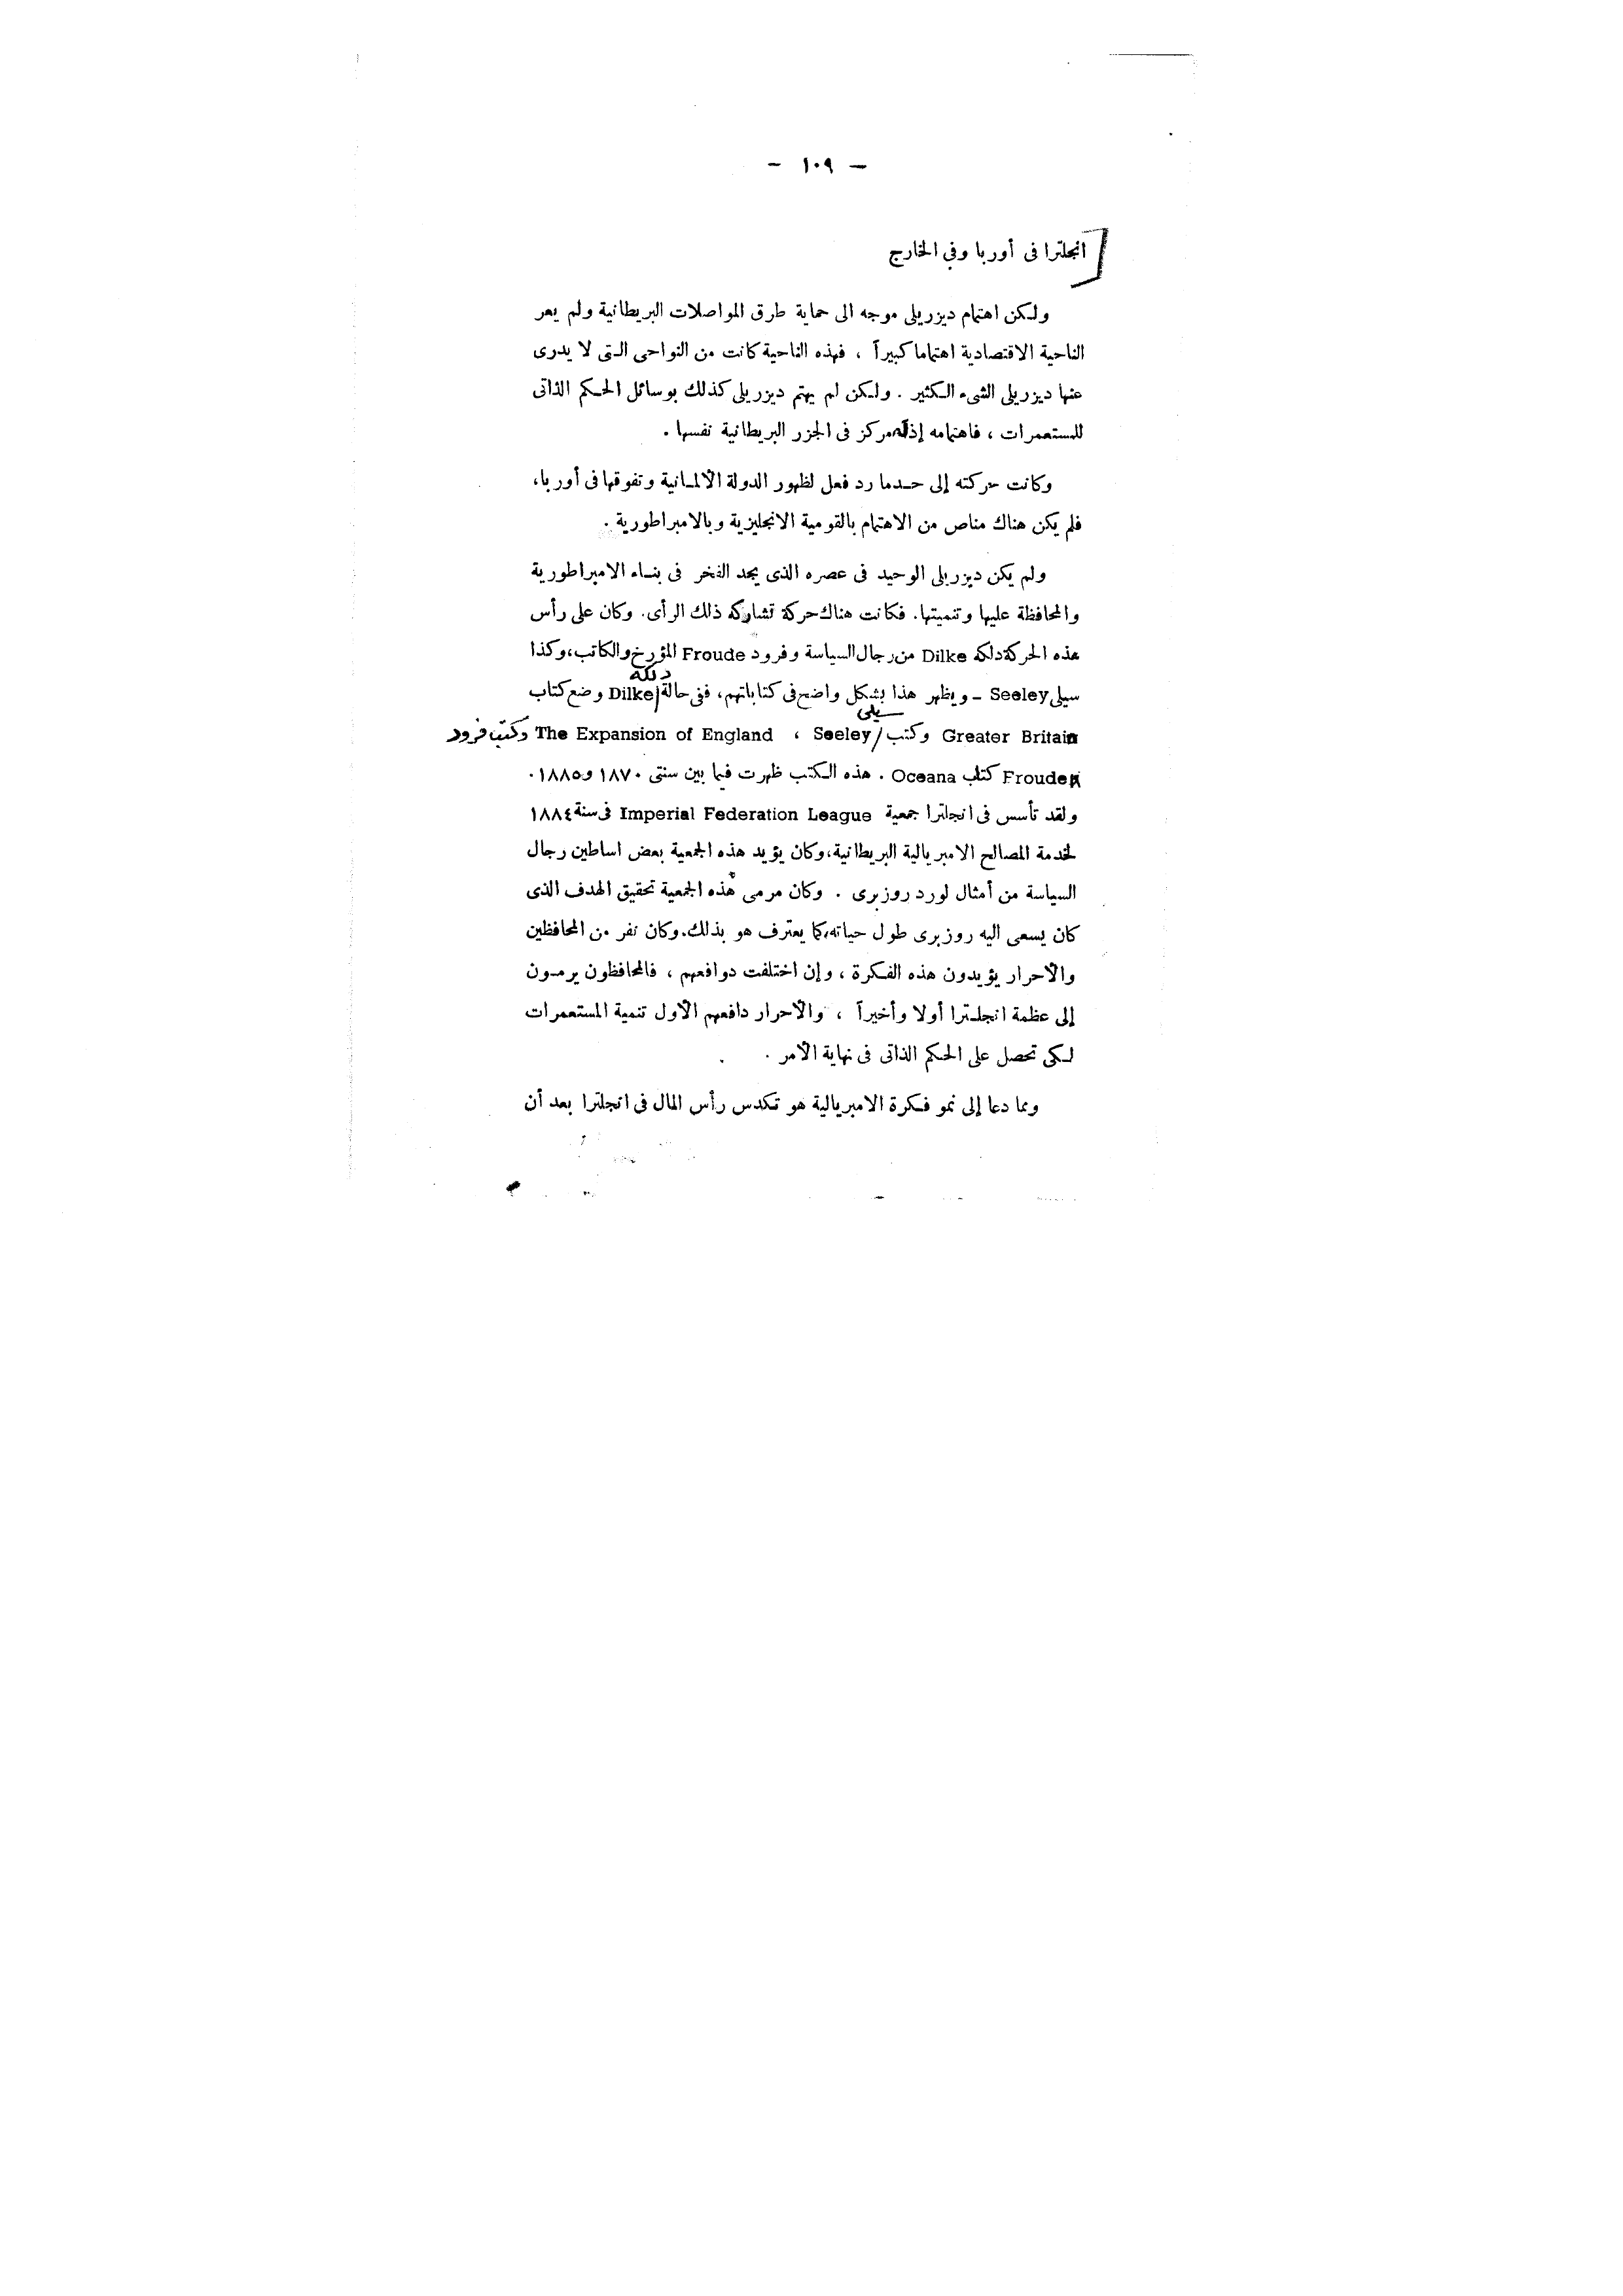 — ١٠٩ —
انجلترا فى أوربا وفي الخارج
ولكن اهتمام ديزريلى موجه الى حماية طرق المواصلات البريطانية ولم يعر
الناحية الاقتصادية اهتماما كبيراً ، فهذه الناحية كانت من النواحى التى لا يدرى
عنها ديزريلى الشىء الكثير . ولكن لم يهتم ديزريلى كذلك بوسائل الحكم الذاتى
للمستعمرات ، فاهتمامه إذاً مركز فى الجزر البريطانية نفسها .
وكانت حركته إلى حد ما رد فعل لظهور الدولة الألمانية وتفوقها فى أوربا،
فلم يكن هناك مناص من الاهتمام بالقومية الانجليزية وبالامبراطورية .
ولم يكن ديزريلى الوحيد فى عصره الذى يجد الفخر فى بناء الامبراطورية
والمحافظة عليها وتنميتها. فكانت هناك حركة تشاركه ذلك الرأى. وكان على رأس
هذه الحركة دلكه Dilke من رجال السياسة وفرود Froude المؤرخ والكاتب، وكذا
سيلى Seeley – ويظهر هذا بشكل واضح فى كتاباتهم، ففى حالة دلكه Dilke وضع كتاب
Greater Britain وكتب سيلى Seeley ، The Expansion of England وكتب فرود
Froude كتاب Oceana . هذه الكتب ظهرت فيما بين سنتى ١٨٧٠ و١٨٨٥.
ولقد تأسس فى انجلترا جمعية Imperial Federation League فى سنة ١٨٨٤
لخدمة المصالح الامبريالية البريطانية، وكان يؤيد هذه الجمعية بعض اساطين رجال
السياسة من أمثال لورد روزبرى . وكان مرمى هذه الجمعية تحقيق الهدف الذى
كان يسعى اليه روزبرى طول حياته، كما يعترف هو بذلك. وكان نفر من المحافظين
والأحرار يؤيدون هذه الفكرة ، وإن اختلفت دوافعهم ، فالمحافظون يرمون
إلى عظمة انجلترا أولا وأخيراً ، والأحرار دافعهم الأول تنمية المستعمرات
لكى تحصل على الحكم الذاتى فى نهاية الأمر .
ومما دعا إلى نمو فكرة الامبريالية هو تكدس رأس المال فى انجلترا بعد أن